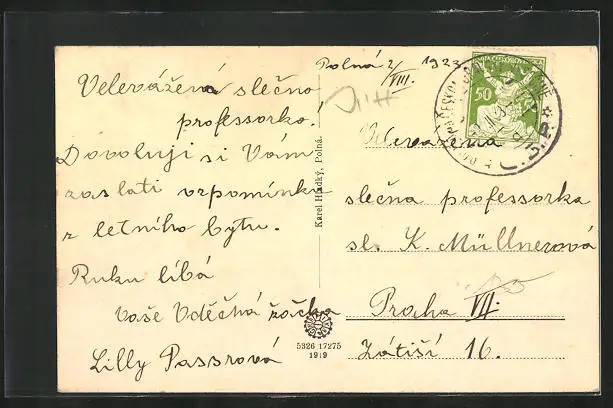 Polná 2/VIII. 1923
Velevážená slečno
professorko!
Dovoluji si Vám
zaslati vzpomínku
z letního bytu.
Ruku líbá
Vaše Vděčná žačka
Lilly Passrová
Karel Hladký, Polná.
5326 17275
1919
50
Č.S.P.
Velevážená
slečna professorka
sl. K. Müllnerová
Praha VII.
Zátiší 16.